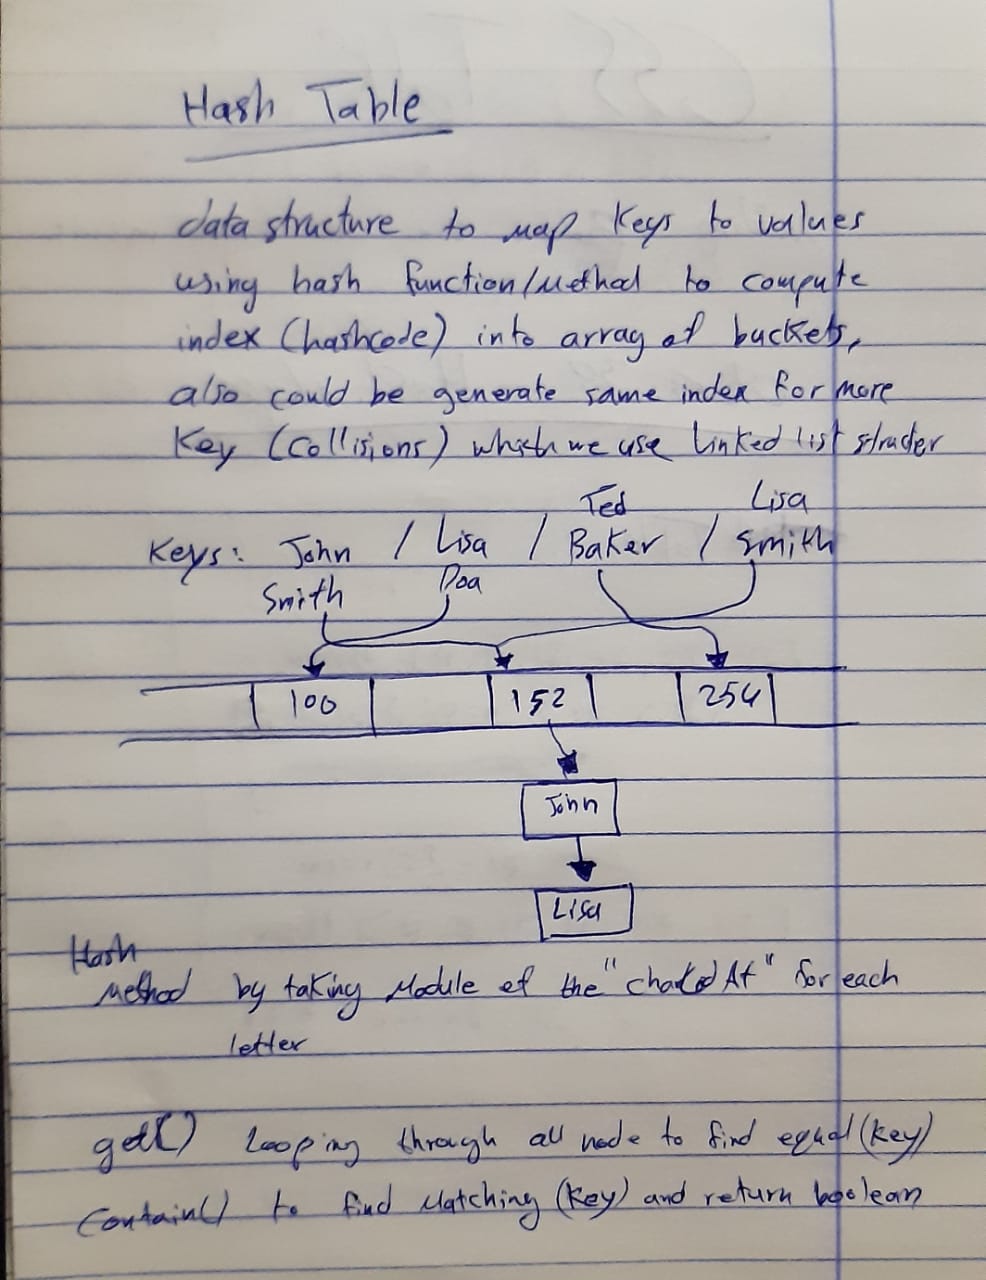 Hash Table
data structure to map Keys to values
using hash function/Method to compute
index (hashcode) into array of buckets,
also could be generate same index for more
Key (Collisions) which we use linked list structer
Ted Lisa
Keys: John / Lisa / Baker / Smith
Smith Doa
100 152 254
John
Lisa
Hash
Method by taking Module of the "At" for each
letter
get() Looping through all node to find equal (key)
Contain() to find Matching (Key) and return boolean